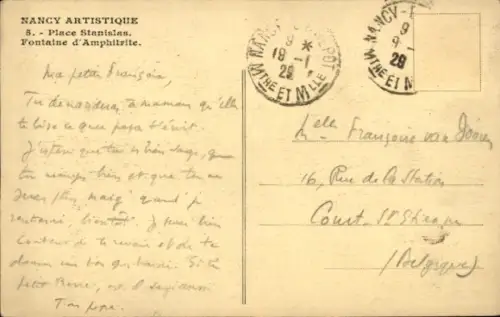 NANCY ARTISTIQUE
8. - Place Stanislas.
Fontaine d'Amphitrite.
Ma petite Françoise,
Tu demanderas à maman qu'elle
te lise ce que papa t'écrit.
J'espère que tu es bien sage, que
tu manges bien et que tu ne
plus quand je
rentrerai, bientôt. Je serai bien
content de te revoir et de te
donner un bon gros baiser. Et ton
petit
Ton papa
NANCY
18 - 1
29
MTHE ET MLLE
NANCY
9
29
ET M
Melle Françoise van
16, Rue de la Station
Court-St Etienne
(Belgique)